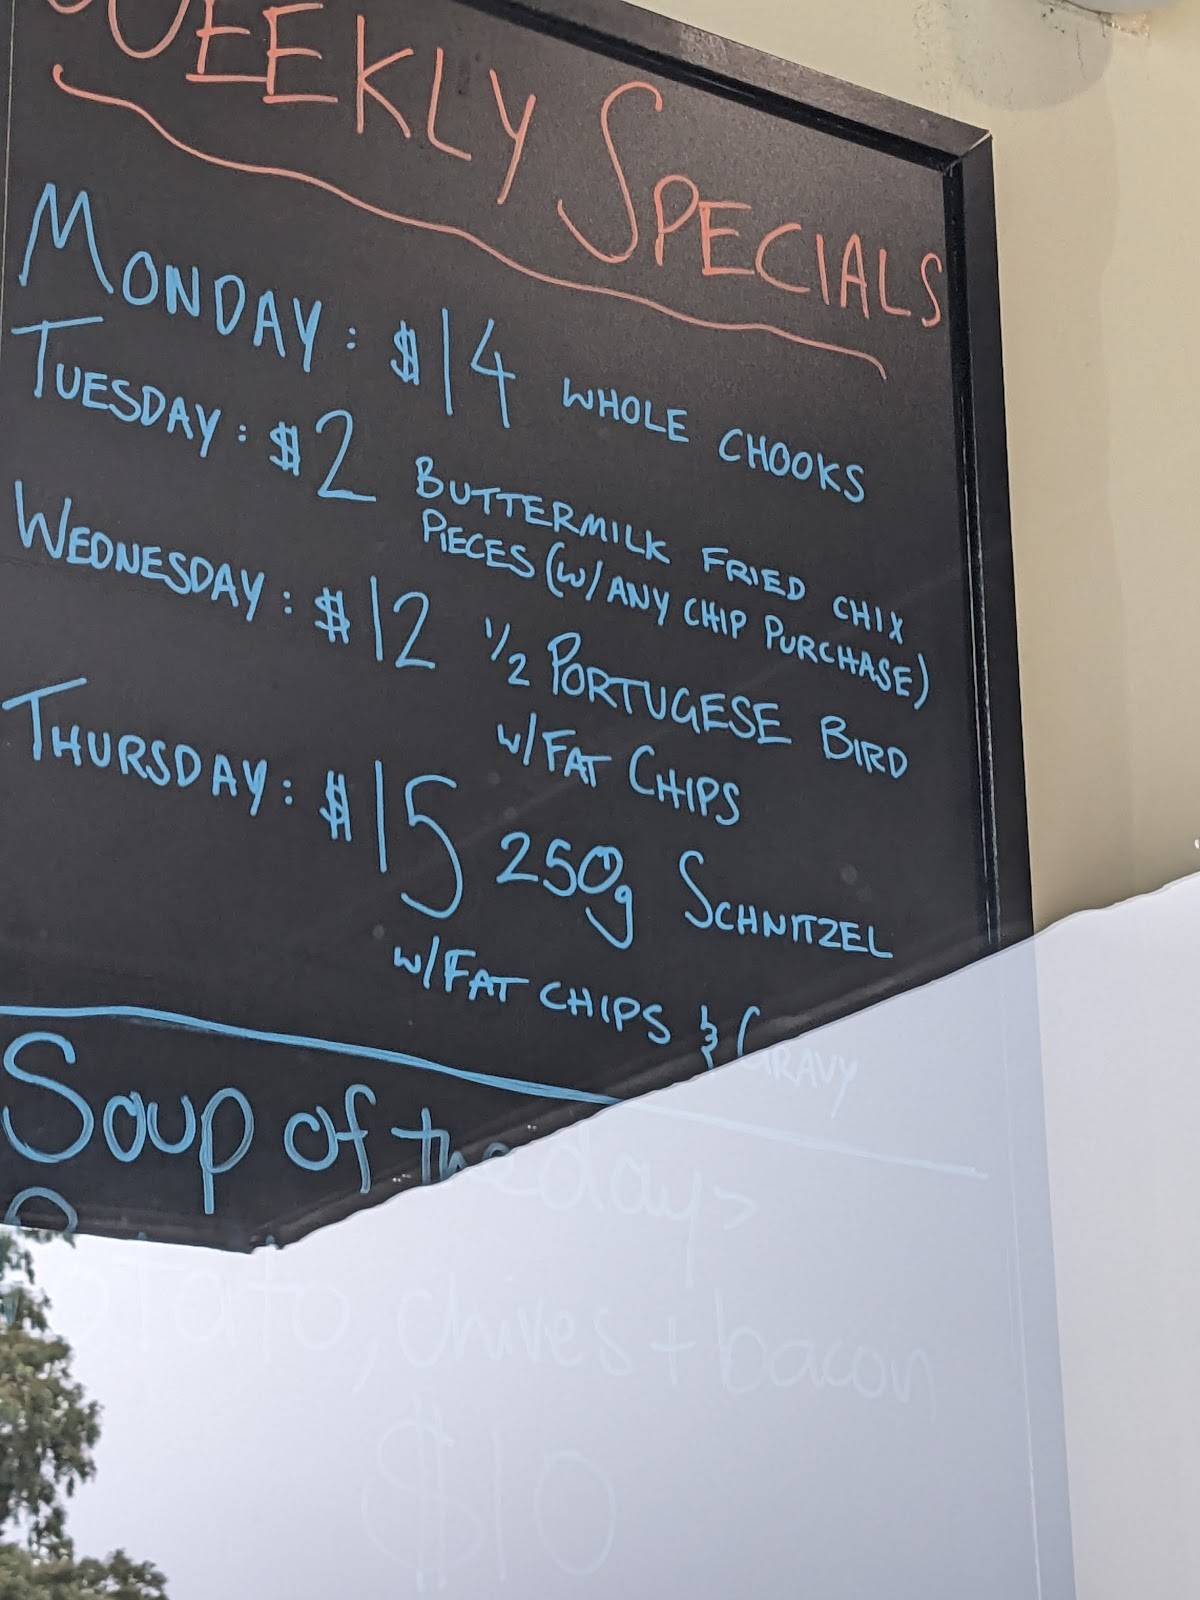 WEEKLY SPECIALS
MONDAY: $14 WHOLE CHOOKS
TUESDAY: $2 BUTTERMILK FRIED CHIX
PIECES (W/ ANY CHIP PURCHASE)
WEDNESDAY: $12 1/2 PORTUGESE BIRD
W/ FAT CHIPS
THURSDAY: $15 250g SCHNITZEL
W/ FAT CHIPS & GRAVY
Soup of the day>
Potato, chives + bacon
$10